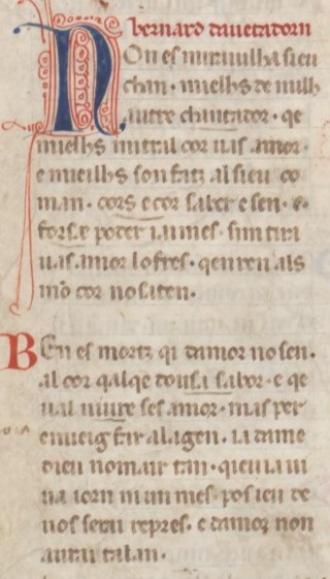 bernard dauetadorn
Non es meruuilha sieu
chan · mielhs de nuilh
autre chantador · qe
mielhs mi tral cor uas amor ·
e mueilhs son fatz al sieu co
man · cors e cor saber e sen · e
forse poder i ai mes · sim tira
uas amor lo fres · qen ren als
mō cor no saten ·
BEn es mortz qi damor no sen ·
al cor qalqe dousa sabor · e qe
ual uiure ses amor · mas per
enueig far a la gen · ia dame
dieu nom air tan · qieu ia ui
ua iorn ni un mes · pos ieu de
nos serai repres · e damor non
aurai talan ·